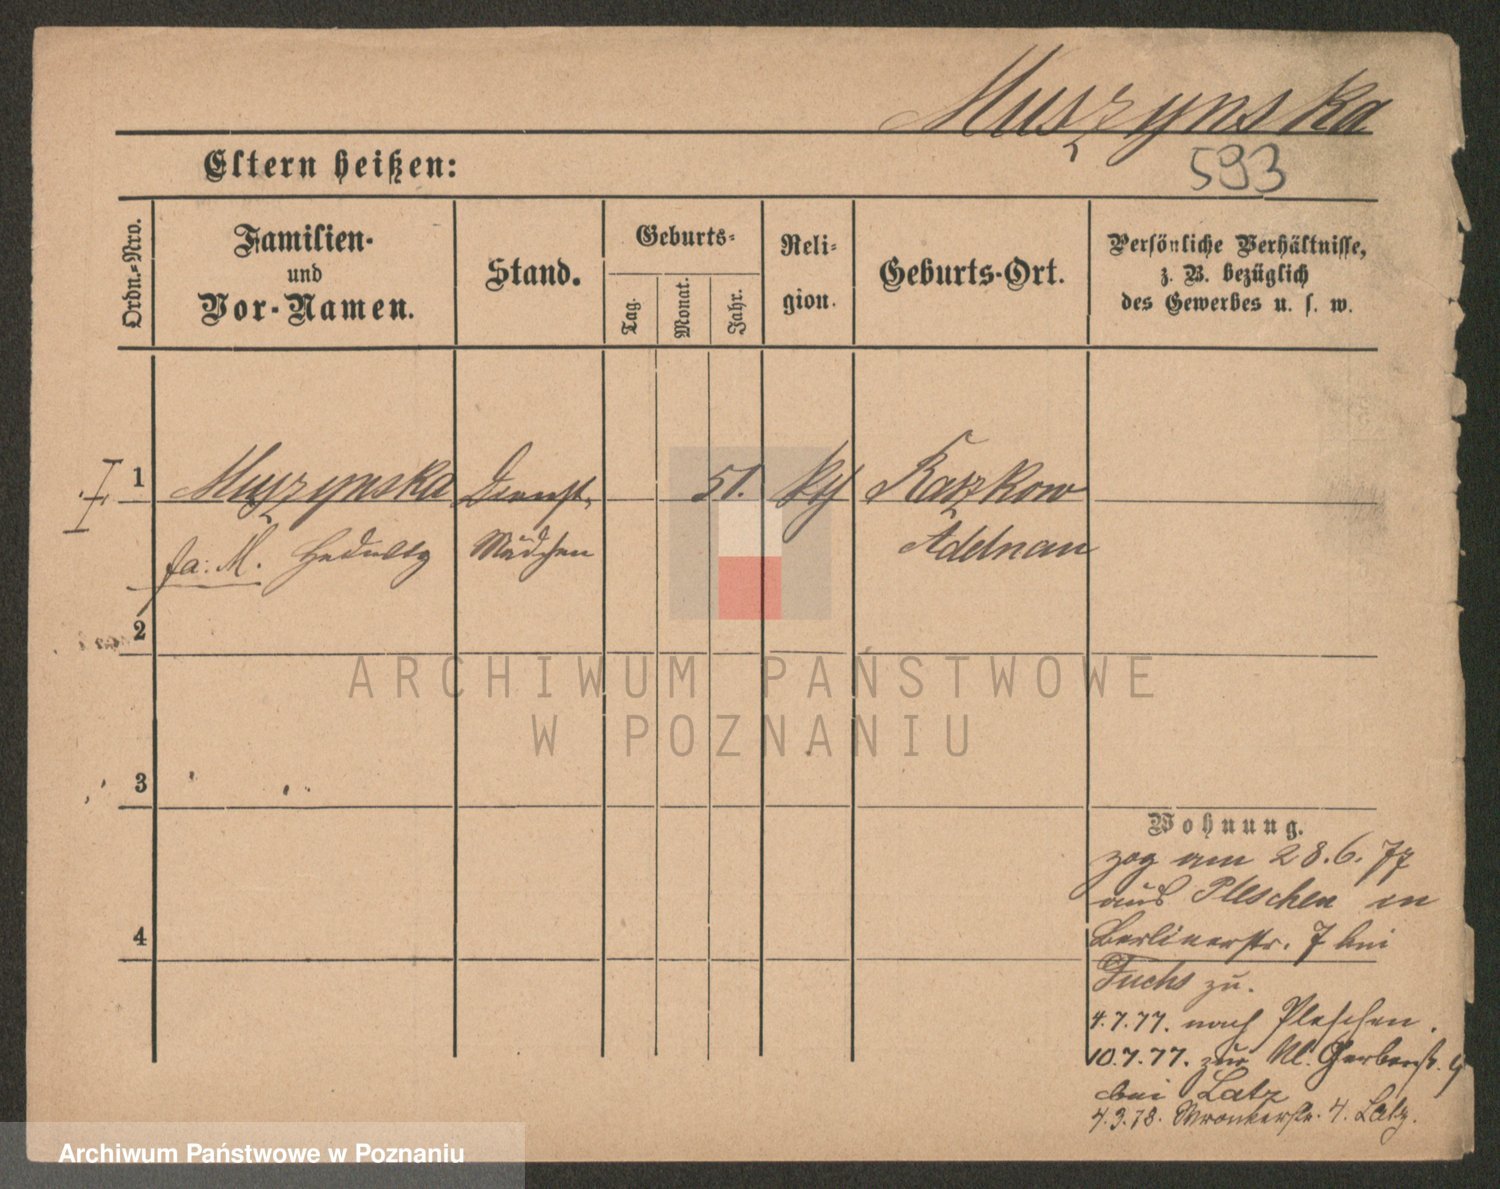 Muszynska
593
Eltern heißen:
Ordn.-Nro.
Familien-
und
Vor-Namen.
Stand.
Geburts-
Tag.
Monat.
Jahr.
Reli-
gion.
Geburts-Ort.
Persönliche Verhältnisse,
z. B. bezüglich
des Gewerbes u. s. w.
1
Muszynska
Dienst-
51.
Raszkow
fa: M. Hedwig
Mädchen
Adelnau
2
3
4
Wohnung.
zog am 28.6.77
aus Pleschen in
Berlinerstr. 7 bei
Fuchs zu.
4.7.77. nach Pleschen.
10.7.77. zur Kl. Gerberstr. 9
bei Latz
4.3.78. Wronkerstr. 4. Latz.
ARCHIWUM PAŃSTWOWE
W POZNANIU
Archiwum Państwowe w Poznaniu